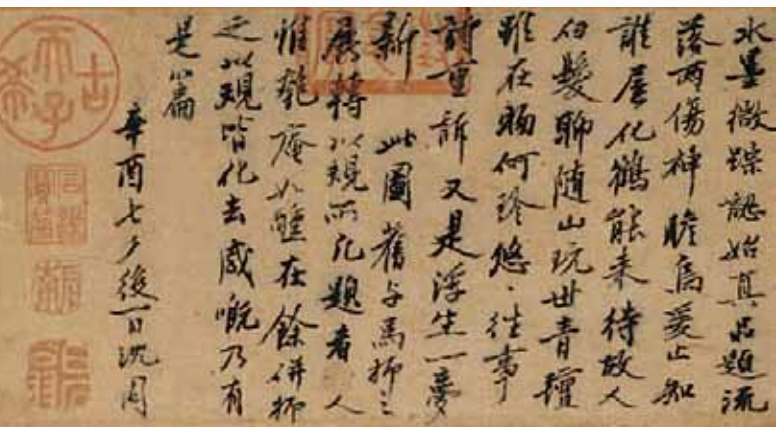 水墨微踪認始真品題流
落两傷神瞻烏爰止知
誰屋化鶴能来待故人
白髮聊随山玩世青氊
雖在何珍悠〻往事
重訴又是浮生一夢
新 此圖舊与馬抑之
展轉以規凡題者人
惟匏庵如在餘併抑
之以規皆化去感嘅乃有
是篇
辛酉七夕後一日沈周
古希天子